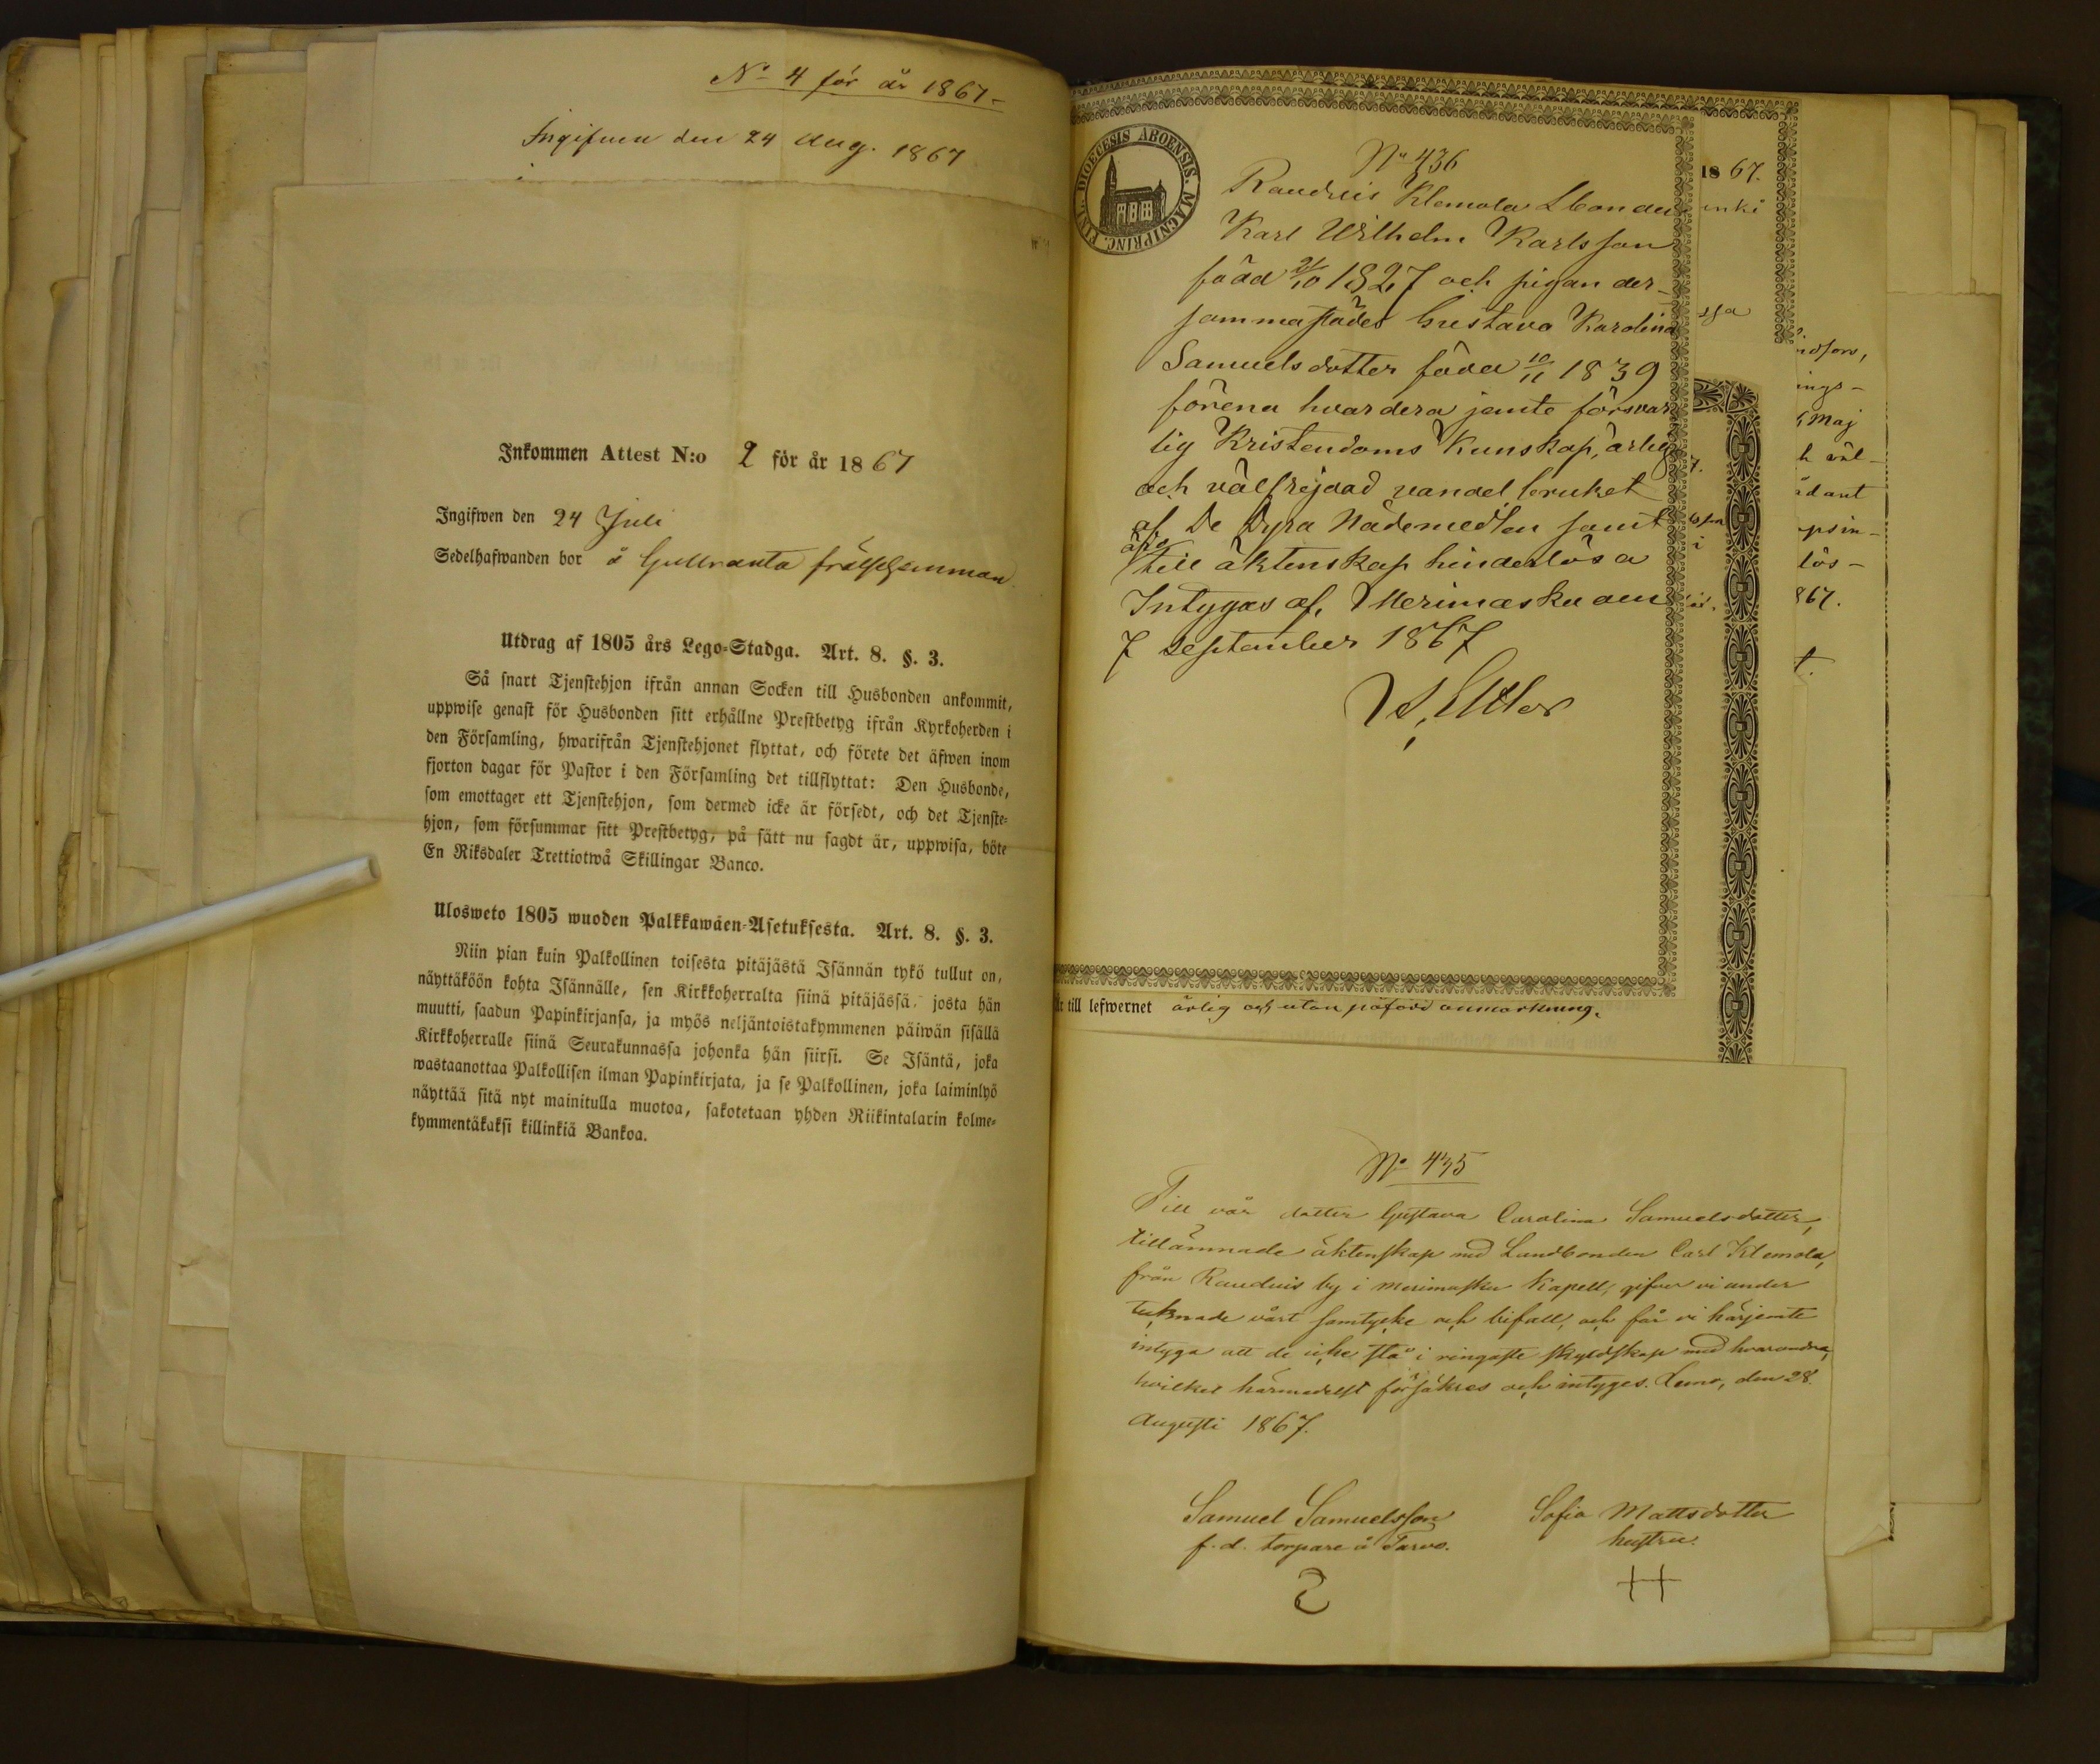 No 4 för år 1867
Ingifven den 24 Aug. 1867
Inkommen Attest N:o 2 för år 1867
Ingifwen den 24 Juli
Sedelhafwanden bor å Gullranta frälsehemman
Utdrag af 1805 års Lego-Stadga. Art. 8. §. 3.
Så snart Tjenstehjon ifrån annan Socken till Husbonden ankommit,
uppwise genast för Husbonden sitt erhållne Prestbetyg ifrån Kyrkoherden i
den Församling, hwarifrån Tjenstehjonet flyttat, och förete det äfwen inom
fjorton dagar för Pastor i den Församling det tillflyttat: Den Husbonde,
som emottager ett Tjenstehjon, som dermed icke är försedt, och det Tjenste-
hjon, som försummar sitt Prestbetyg, på sätt nu sagdt är, uppwisa, böte
En Riksdaler Trettiotwå Skillingar Banco.
Ulosweto 1805 wuoden Palkkawäen-Asetuksesta. Art. 8. §. 3.
Niin pian kuin Palkollinen toisesta pitäjästä Isännän tykö tullut on,
näyttäköön kohta Isännälle, sen Kirkkoherralta siinä pitäjässä, josta hän
muutti, saadun Papinkirjansa, ja myös neljäntoistakymmenen päiwän sisällä
Kirkkoherralle siinä Seurakunnassa johonka hän siirsi. Se Isäntä, joka
wastaanottaa Palkollisen ilman Papinkirjata, ja se Palkollinen, joka laiminlyö
näyttää sitä nyt mainitulla muotoa, sakotetaan yhden Riikintalarin kolme-
kymmentäkaksi killinkiä Bankoa.
DIOECESIS ABOENSIS. MAGNI PRINC. FINL.
No 436
Rauduis Klemola Lbonden
Karl Wilhelm Karlsson
född 21/10 1827 och pigan der-
sammastädes Gustava Karolina
Samuelsdotter född 10/11 1839
förena hvardera jemte försvar
lig Kristendoms Kunskap, ärlig
och välfrejdad vandel bruket
af De Dyra Nådemedlen samt
äro till äktenskap hinderlösa
Intygas af. Merimasku den
7 September 1867
är till lefwernet ärlig och utan påförd anmärkning.
1867.
No 435
Till vår dotter Gustava Carolina Samuelsdotter,
tillämnade äktenskap med Landbonden Carl Klemola,
från Rauduis by i Merimasku Kapell, gifva vi under
tecknade vårt samtycke och bifall, och får vi härjemte
intyga att de icke stå i ringaste skyldskap med hvarandra,
hvilket härmedelst försäkras och intyges. Lemo, den 28
Augusti 1867.
Samuel Samuelsson Sofia Mattsdotter
f.d. torpare å Tarvo. hustru.